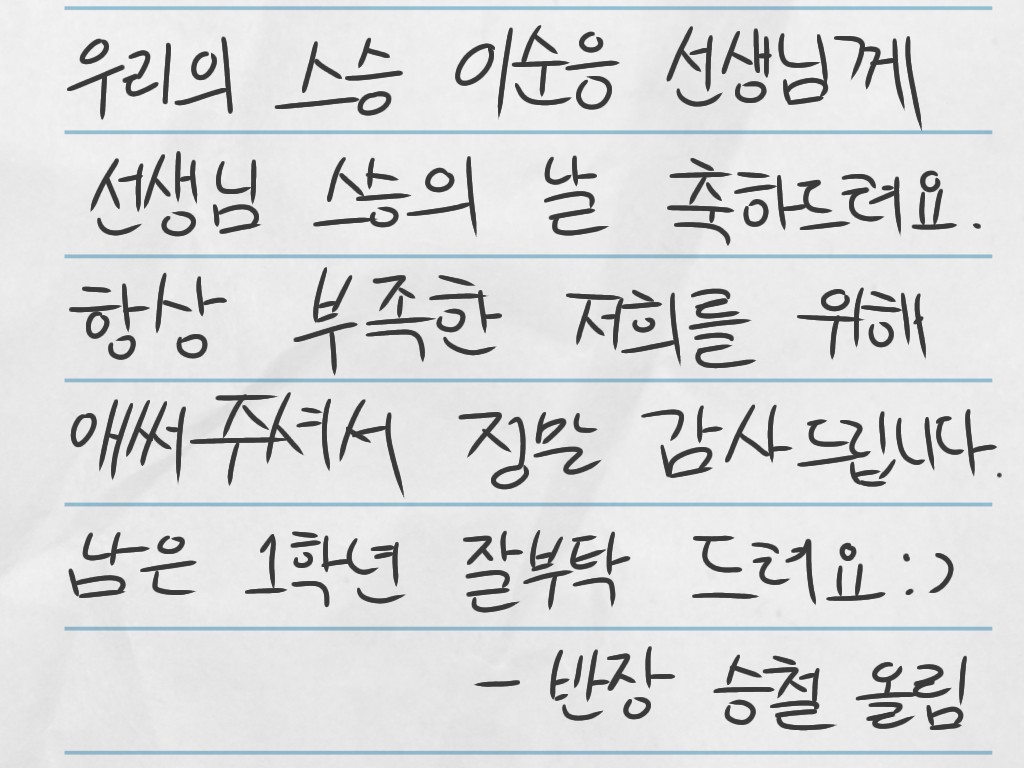 우리의 스승 이순응 선생님께
선생님 스승의 날 축하드려요.
항상 부족한 저희를 위해
애써주셔서 정말 감사드립니다.
남은 1학년 잘부탁 드려요:)
- 반장 승철 올림